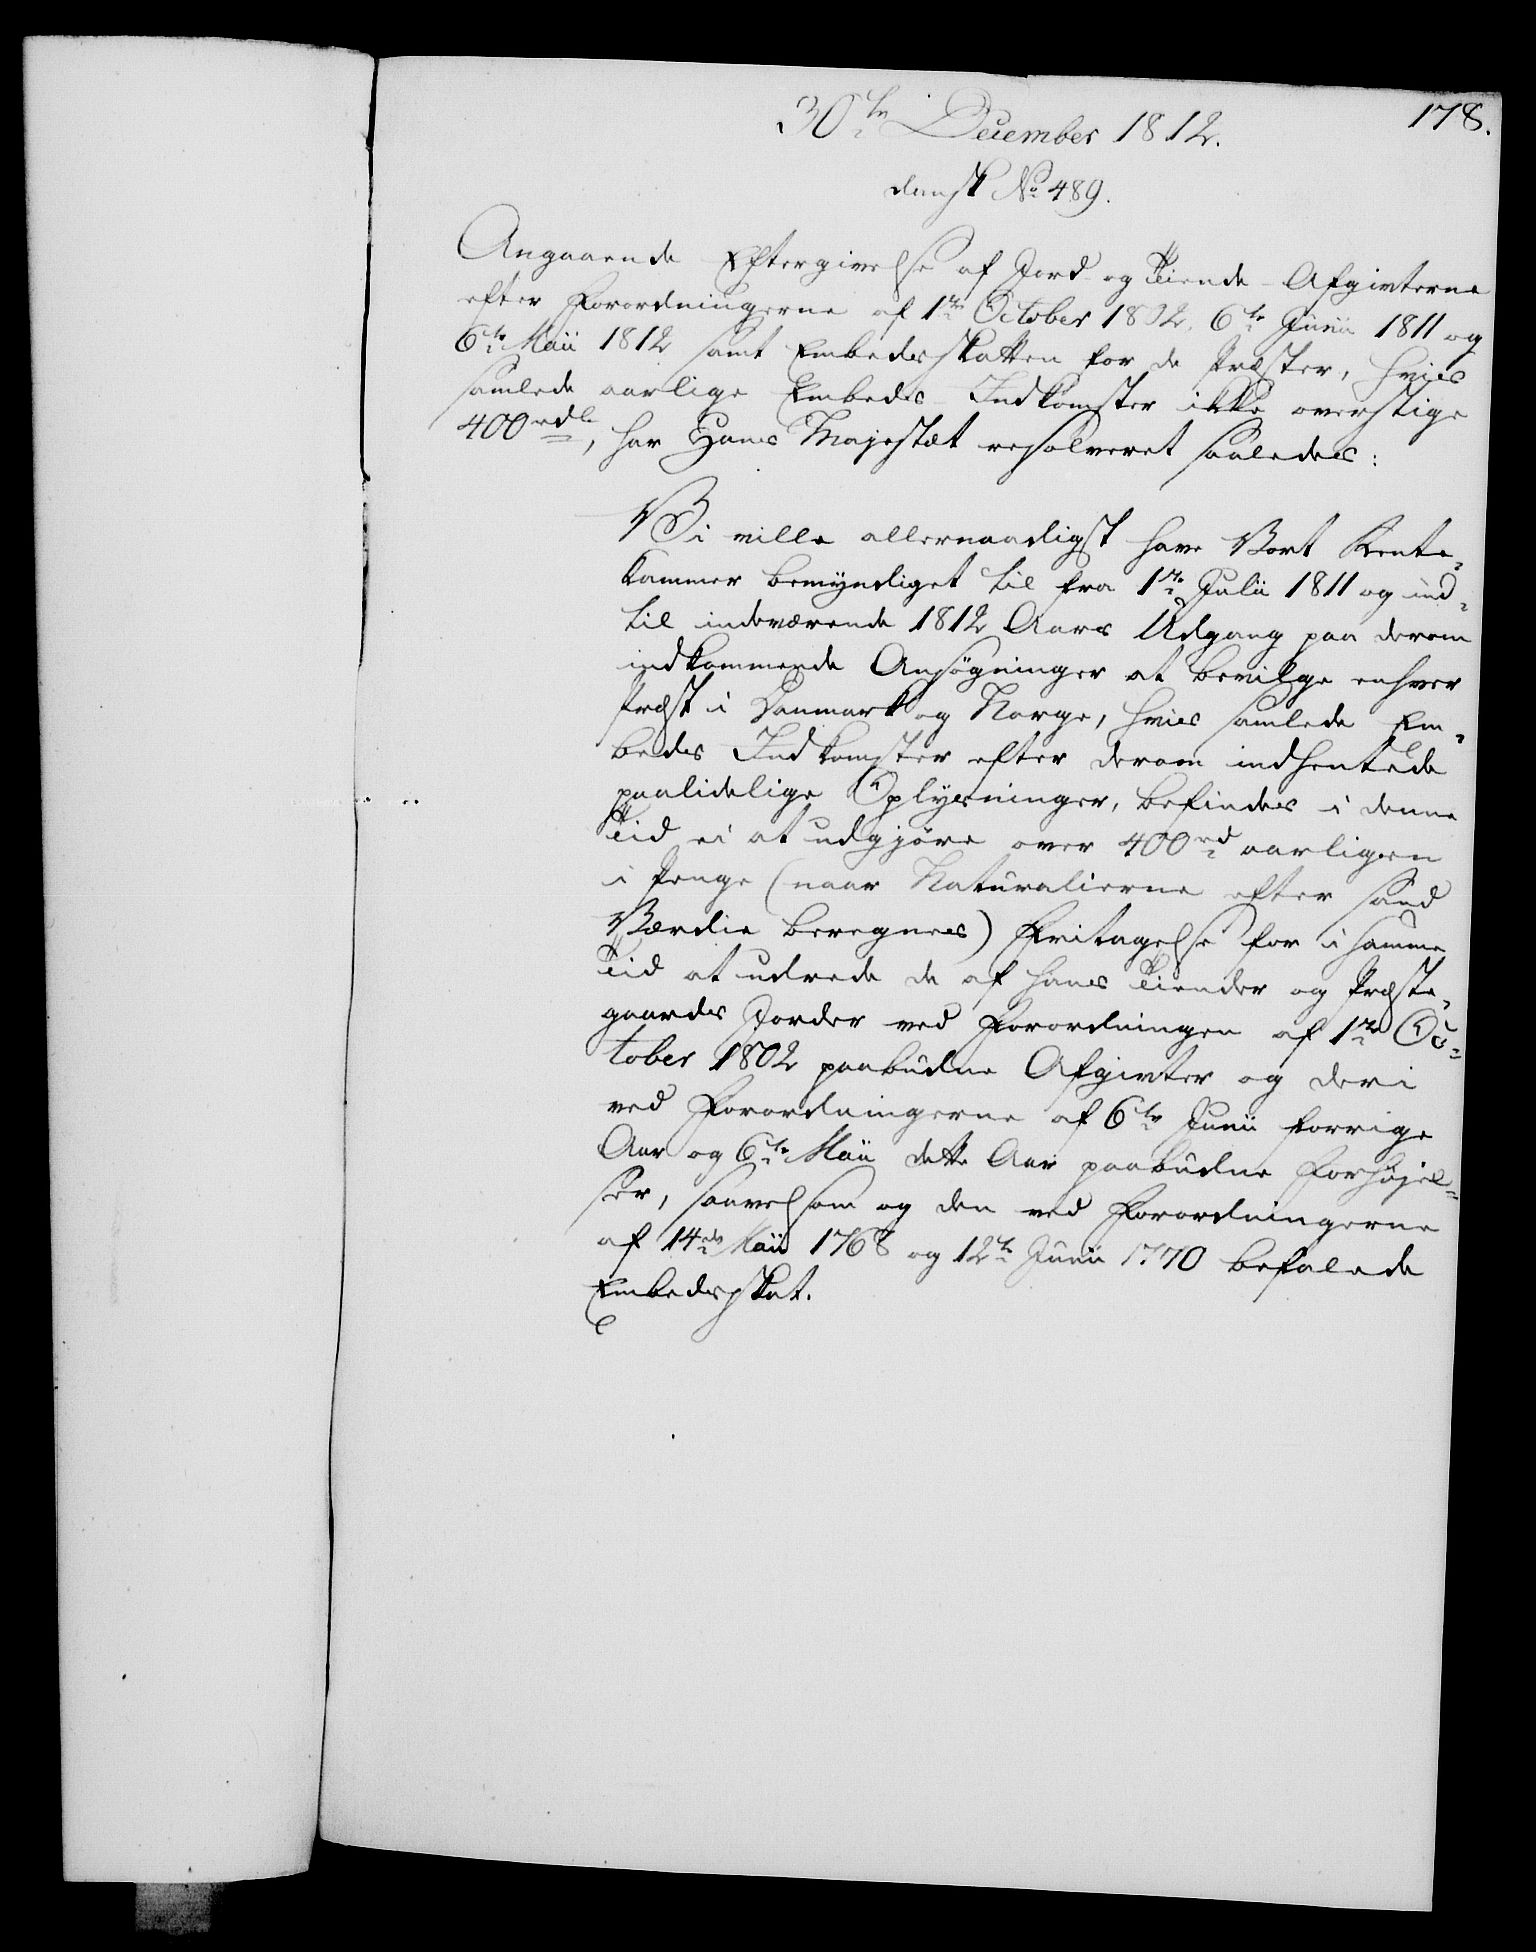 178.
30te December 1812.
dansk No 489.
Angaaende Eftergivelse af Jord- og Tiende-Afgivterne
efter Forordningerne af 1te October 1802, 6te Junii 1811 og
6te Maii 1812 samt Embedsskatten for de Præster, hvis
samlede aarlige Embeds-Indkomster ikke overstige
400 rdl, har Hans Majestæt resolveret saaledes:
Vi ville allernaadigst have Vort Rente-
kammer bemyndiget til fra 1te Julii 1811 og ind-
til indeværende 1812 Aars Udgang paa derom
indkommende Ansøgninger at bevilge enhver
Præst i Danmark og Norge, hvis samlede Em-
beds Indkomster efter derom indhentede
paalidelige Oplysninger, befindes i denne
Tid ei at udgjøre over 400 rd aarligen
i Penge (naar Naturalierne efter sand
Værdie beregnes) Fritagelse for i samme
Tid at udrede de af hans Tiender og Præste-
gaards Jorder ved Forordningen af 1te Oc-
tober 1802 paabudne Afgivter og deri
ved Forordningerne af 6te Junii forrige
Aar og 6te Maii dette Aar paabudne Forhøjel-
ser, saavelsom og den ved Forordningerne
af 14de Maii 1768 og 12te Junii 1770 befalede
Embedsskat.